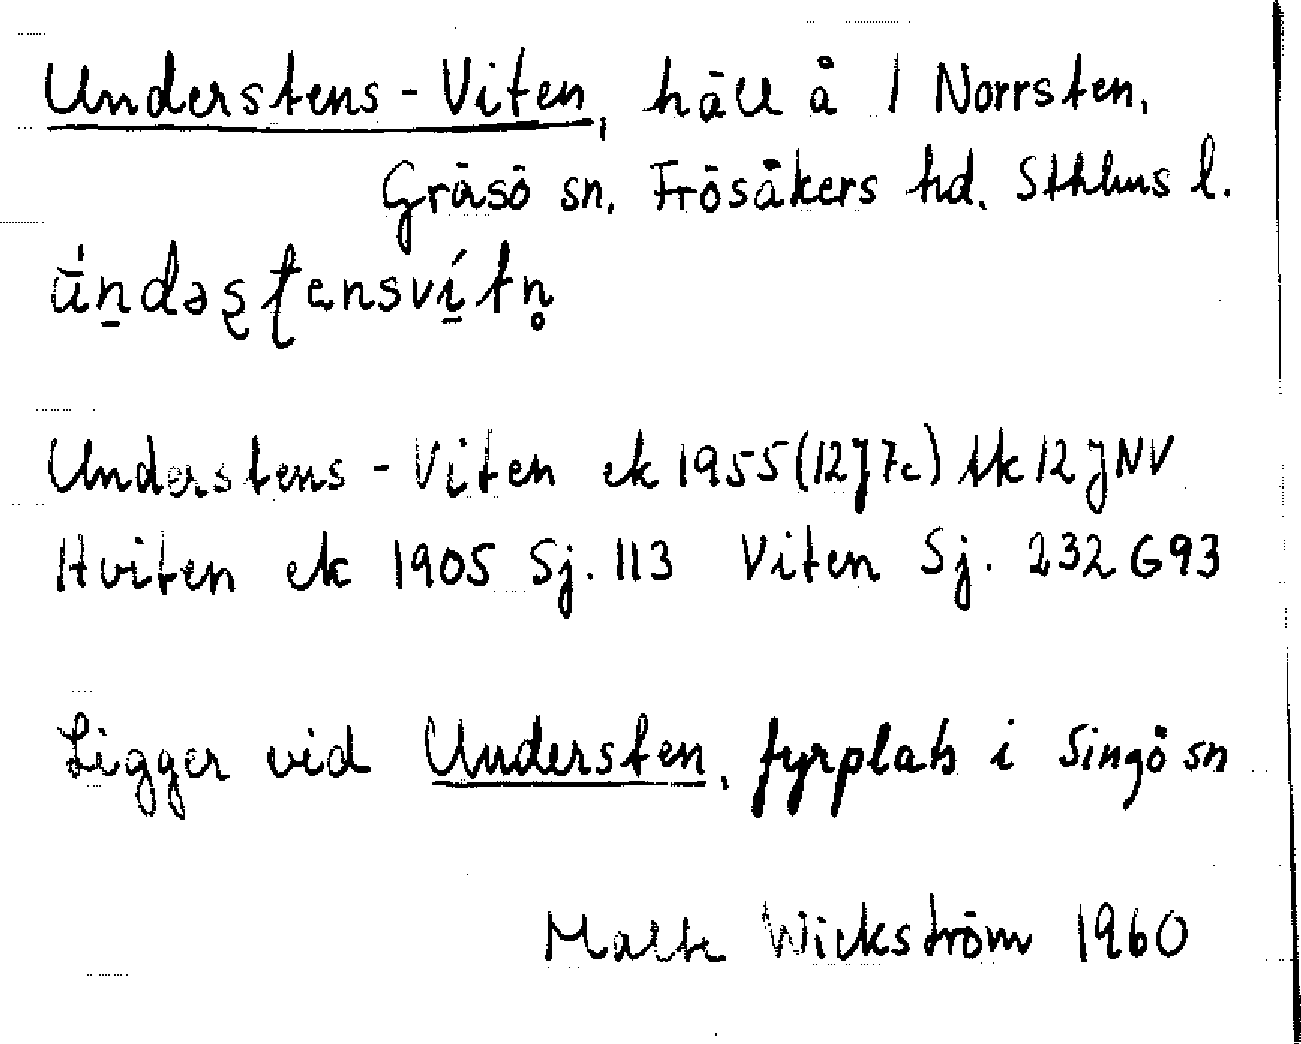 Understens-Viten, häll å 1 Norrsten,
Gräsö sn, Frösåkers hd. Sthlms l.
Understens-Viten ek 1955 (12J7c) tk 12 J NV
Hviten ek 1905 Sj. 113 Viten Sj. 232 G93
Ligger vid Understen, fyrplats i Singö sn
Malte Wickström 1960